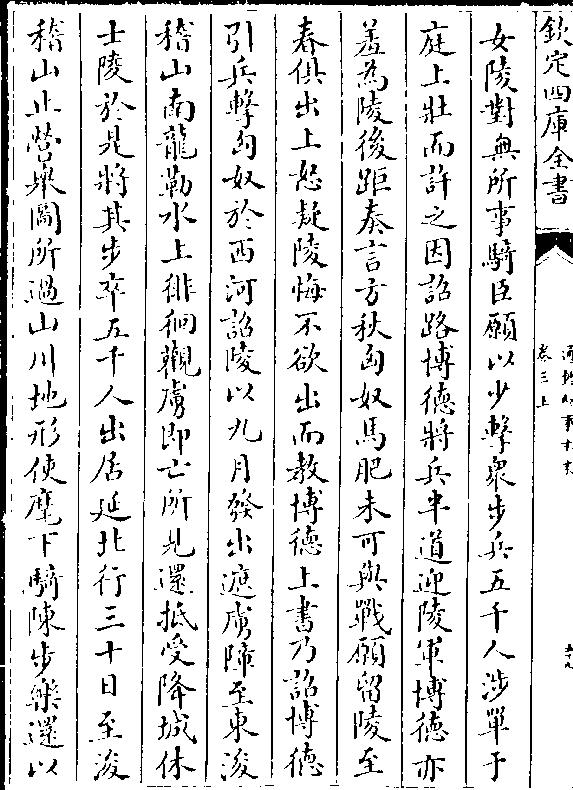 欽定四庫全書
卷三上
女陵對無所事騎臣願以少擊衆步兵五千人涉單于
庭上壯而許之因詔路博德將兵半道迎陵軍博德亦
羞為陵後距奏言方秋匈奴馬肥未可與戰願留陵至
春俱出上怒疑陵悔不欲出而教博德上書乃詔博德
引兵擊匈奴於西河詔陵以九月發出遮虜障至東浚
稽山南龍勒水上徘徊觀虜即亡所見還抵受降城休
士陵於是將其步卒五千人出居延北行三十日至浚
稽山止營舉圖所過山川地形使麾下騎陳步樂還以